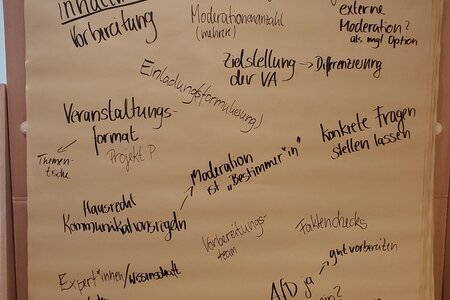 Vorbereitung
Moderationenanzahl
(mehrere)
externe
Moderation?
als mgl. Option
Zielstellung
der VA → Differenzierung
Einladungsformulierung!
Veranstaltungs-
format
Projekt P
Themen-
tische
Konkrete Fragen
stellen lassen
Moderation
ist „Bestimmer*in"
Hausrecht
Kommunikationsregeln
Vorbereitungs-
team
Faktenchecks
gut vorbereiten
Expert*innen/Wissenschaft
AfD ja